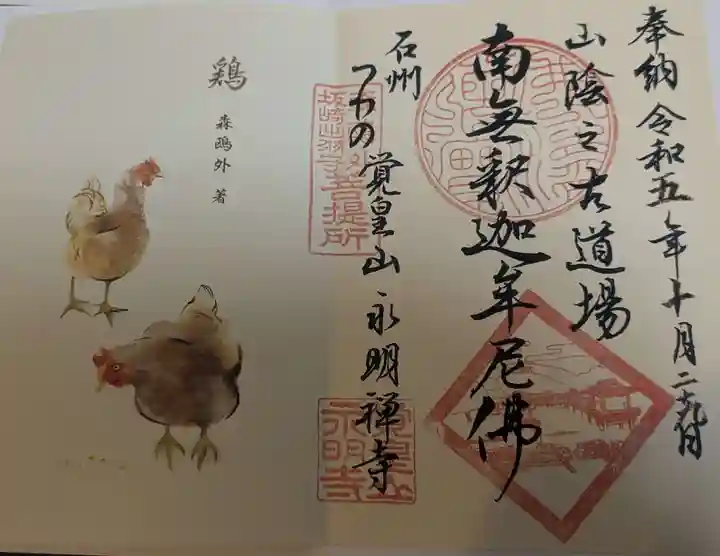 奉納 令和五年十月二十九日
山陰之古道場
南無釈迦牟尼佛
石州
つわの 覚皇山 永明禅寺
坂崎出羽守菩提所
覚皇山
永明寺
鶏
森鴎外 著